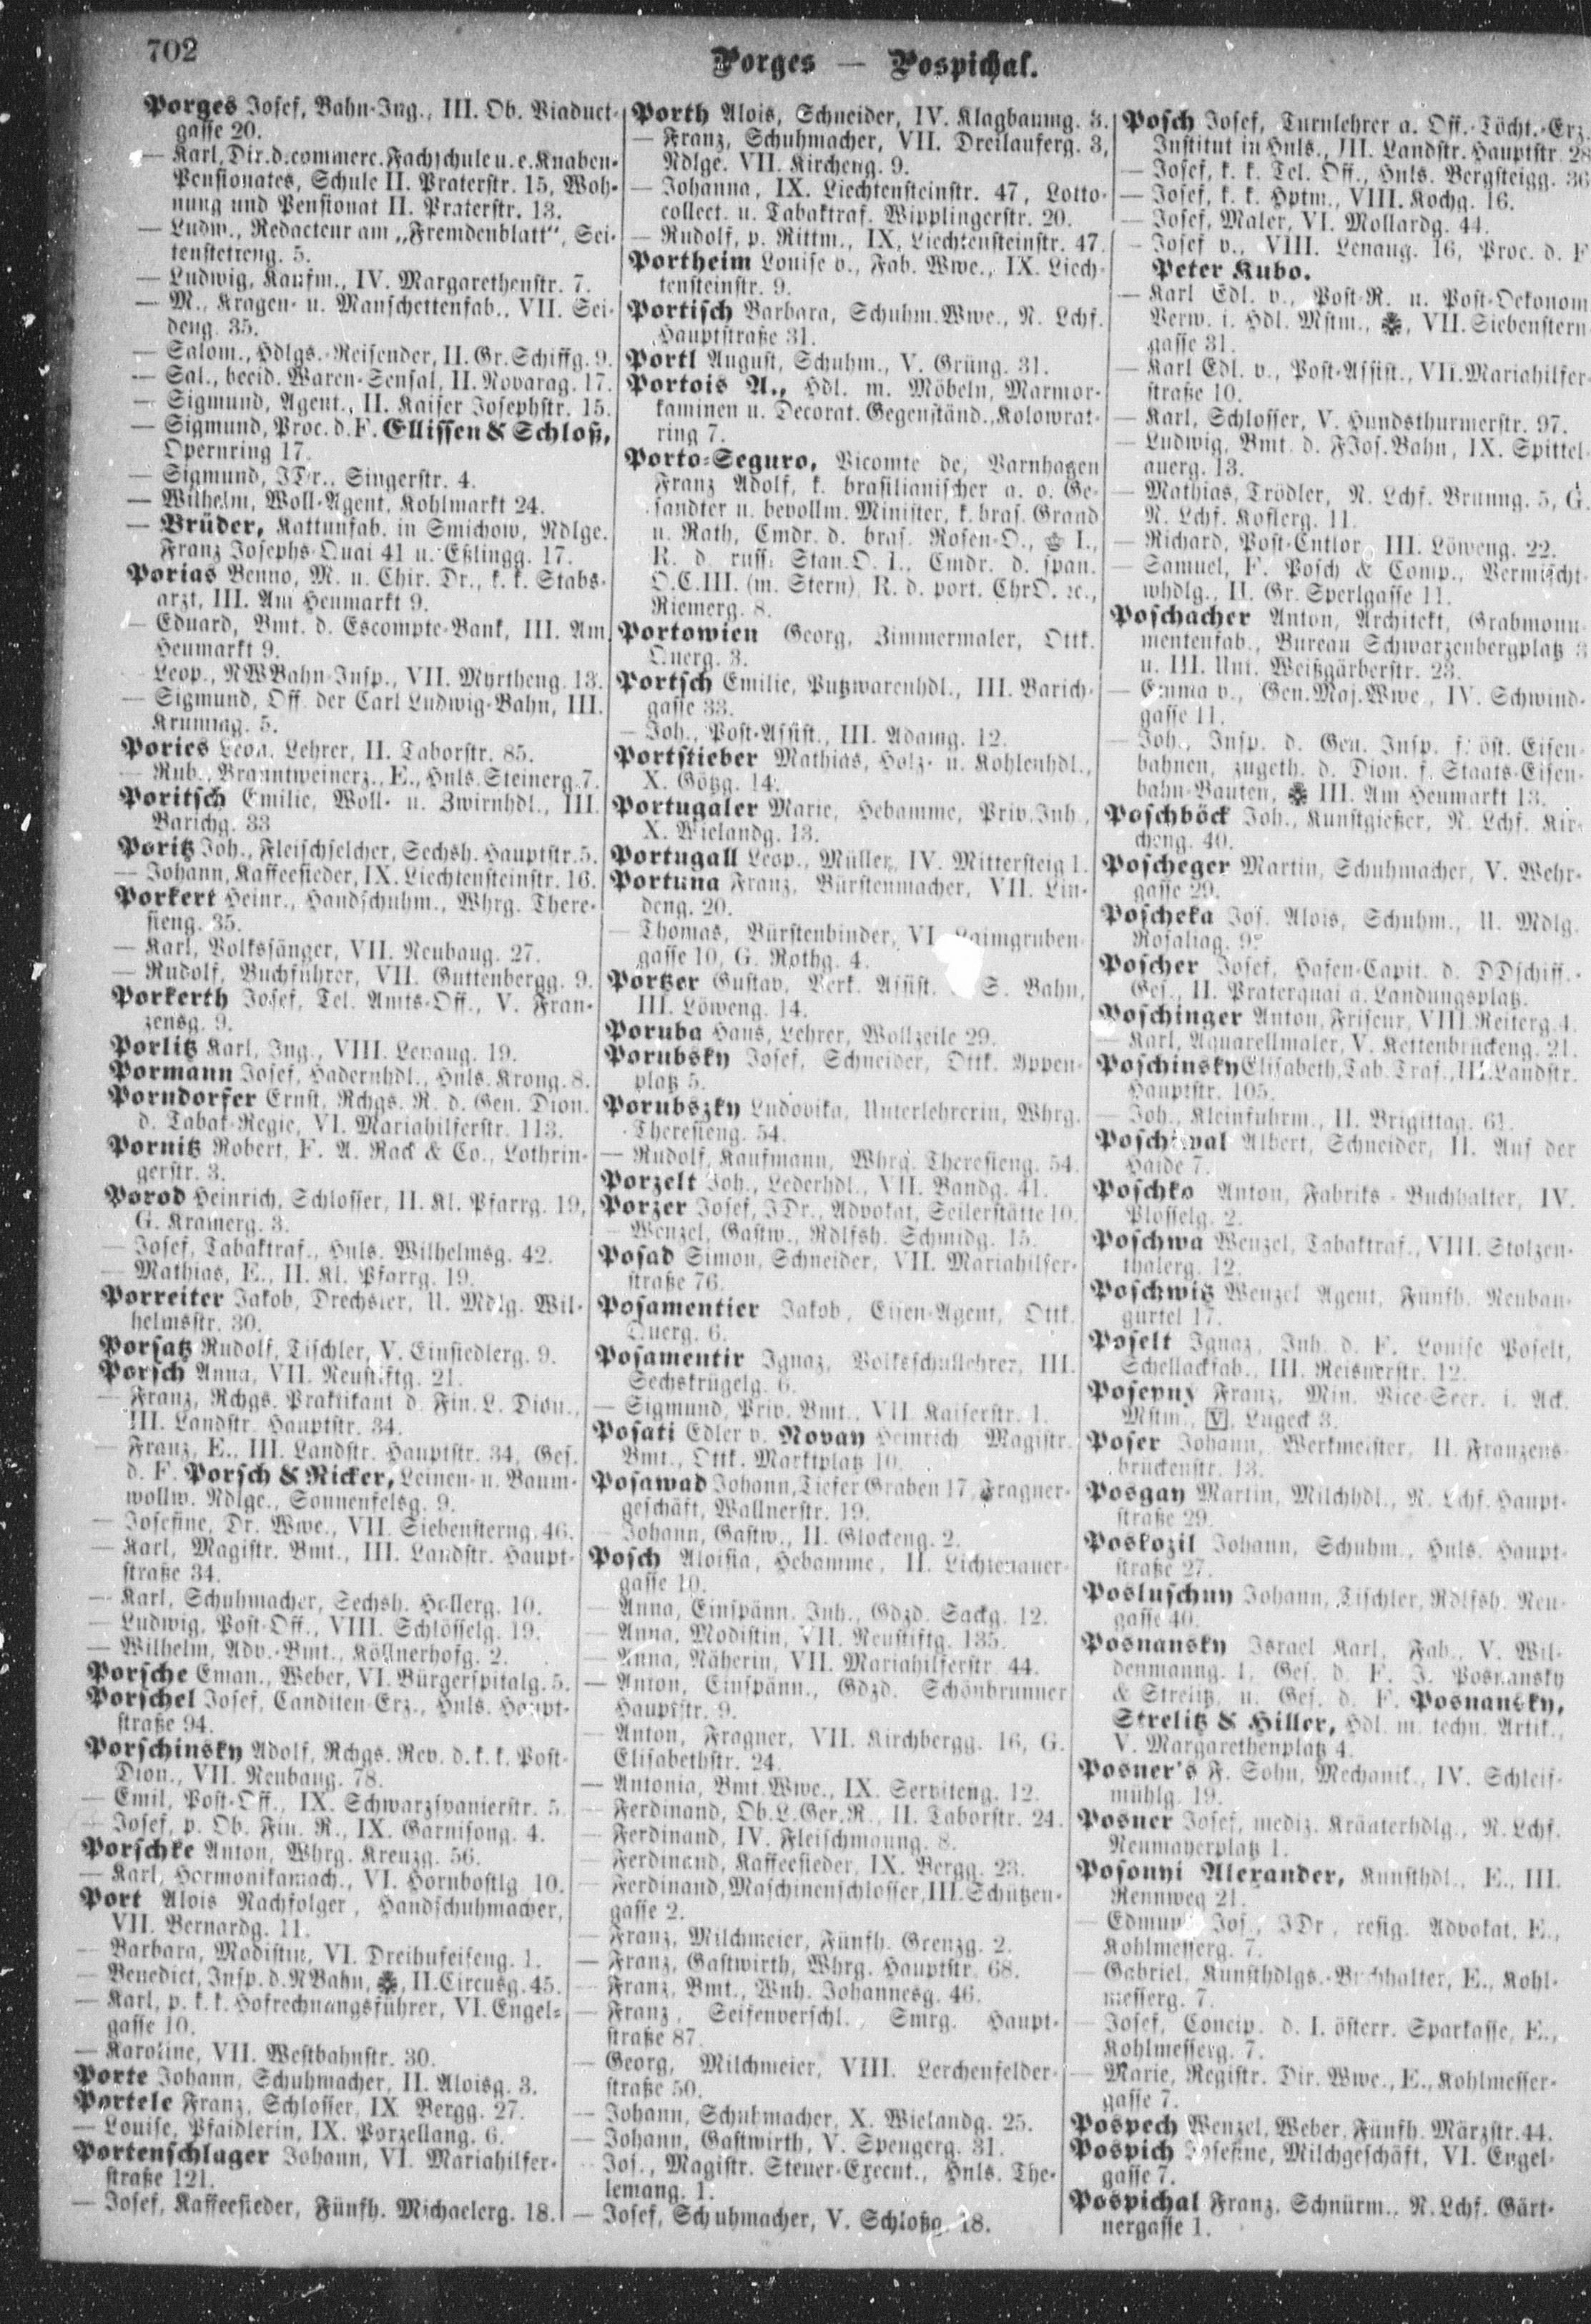 702
Porges — Pospichal.
Porges Josef, Bahn-Ing., III. Ob. Viaduct-
gasse 20.
— Karl, Dir. d. commerc. Fachschule u. e. Knaben-
Pensionates, Schule II. Praterstr. 15, Woh-
nung und Pensionat II. Praterstr. 13.
— Ludw., Redacteur am „Fremdenblatt“, Sei-
tenstetteng. 5.
— Ludwig, Kaufm., IV. Margarethenstr. 7.
— M., Kragen- u. Manschettenfab., VII. Sei-
deng. 35.
— Salom., Hdlgs.-Reisender, II. Gr. Schiffg. 9.
— Sal., beeid. Waren-Sensal, II. Novarag. 17.
— Sigmund, Agent., II. Kaiser Josephstr. 15.
— Sigmund, Proc. d. F. Ellissen & Schloß,
Opernring 17.
— Sigmund, JDr., Singerstr. 4.
— Wilhelm, Woll-Agent, Kohlmarkt 24.
— Brüder, Kattunfab. in Smichow, Ndlge.
Franz Josephs-Quai 41 u. Eßlingg. 17.
Porias Benno, M. u. Chir. Dr., k. k. Stabs-
arzt, III. Am Heumarkt 9.
— Eduard, Bmt. d. Escompte-Bank, III. Am
Heumarkt 9.
— Leop., NWBahn-Insp., VII. Myrtheng. 13.
— Sigmund, Off. der Carl Ludwig-Bahn, III.
Krummg. 5.
Pories Leon, Lehrer, II. Taborstr. 85.
— Rub., Branntweinerz., E., Hnls. Steinerg. 7.
Poritsch Emilie, Woll- u. Zwirnhdl., III.
Barichg. 33
Poritz Joh., Fleischselcher, Sechsh. Hauptstr. 5.
— Johann, Kaffeesieder, IX. Liechtensteinstr. 16.
Porkert Heinr., Handschuhm., Whrg. There-
sieng. 35.
— Karl, Volkssänger, VII. Neubaug. 27.
— Rudolf, Buchführer, VII. Guttenbergg. 9.
Porkerth Josef, Tel. Amts-Off., V. Fran-
zensg. 9.
Porlitz Karl, Ing., VIII. Lenaug. 19.
Pormann Josef, Hadernhdl., Hnls. Krong. 8.
Porndorfer Ernst, Rchgs. R. d. Gen. Dion.
d. Tabak-Regie, VI. Mariahilferstr. 113.
Pornitz Robert, F. A. Rack & Co., Lothrin-
gerstr. 3.
Porod Heinrich, Schlosser, II. Kl. Pfarrg. 19,
G. Kramerg. 3.
— Josef, Tabaktraf., Hnls. Wilhelmsg. 42.
— Mathias, E., II. Kl. Pfarrg. 19.
Porreiter Jakob, Drechsler, U. Mdlg. Wil-
helmsstr. 30.
Porsatz Rudolf, Tischler, V. Einsiedlerg. 9.
Porsch Anna, VII. Neustiftg. 21.
— Franz, Rchgs. Praktikant d. Fin. L. Dion.,
III. Landstr. Hauptstr. 34.
— Franz, E., III. Landstr. Hauptstr. 34, Ges.
d. F. Porsch & Ricker, Leinen- u. Baum-
wollw. Ndlge., Sonnenfelsg. 9.
— Josefine, Dr. Wwe., VII. Siebensterng. 46.
— Karl, Magistr. Bmt., III. Landstr. Haupt-
straße 34.
— Karl, Schuhmacher, Sechsh. Hollerg. 10.
— Ludwig, Post-Off., VIII. Schlösselg. 19.
— Wilhelm, Adv.-Bmt., Köllnerhofg. 2.
Porsche Eman., Weber, VI. Bürgerspitalg. 5.
Porschel Josef, Canditen-Erz., Hnls. Haupt-
straße 94.
Porschinsky Adolf, Rchgs. Rev. d. k. k. Post-
Dion., VII. Neubaug. 78.
— Emil, Post-Off., IX. Schwarzspanierstr. 5.
— Josef, p. Ob. Fin. R., IX. Garnisong. 4.
Porschke Anton, Whrg. Kreuzg. 56.
— Karl, Harmonikamach., VI. Hornbostlg. 10.
Port Alois Nachfolger, Handschuhmacher,
VII. Bernardg. 11.
— Barbara, Modistin, VI. Dreihufeiseng. 1.
— Benedict, Insp. d. NBahn, II. Circusg. 45.
— Karl, p. k. k. Hofrechnungsführer, VI. Engel-
gasse 10.
— Karoline, VII. Westbahnstr. 30.
Porte Johann, Schuhmacher, II. Aloisg. 3.
Portele Franz, Schlosser, IX Bergg. 27.
— Louise, Pfaidlerin, IX. Porzellang. 6.
Portenschlager Johann, VI. Mariahilfer-
straße 121.
— Josef, Kaffeesieder, Fünfh. Michaelerg. 18.
Porth Alois, Schneider, IV. Klagbaumg. 3.
— Franz, Schuhmacher, VII. Dreilauferg. 3,
Ndlge. VII. Kircheng. 9.
— Johanna, IX. Liechtensteinstr. 47, Lotto-
collect. u. Tabaktraf. Wipplingerstr. 20.
— Rudolf, p. Rittm., IX. Liechtensteinstr. 47.
Portheim Louise v., Fab. Wwe., IX. Liech-
tensteinstr. 9.
Portisch Barbara, Schuhm. Wwe., N. Lchf.
Hauptstraße 31.
Portl August, Schuhm., V. Grüng. 31.
Portois A., Hdl. m. Möbeln, Marmor-
kaminen u. Decorat. Gegenständ., Kolowrat-
ring 7.
Porto-Seguro, Vicomte de, Varnhagen
Franz Adolf, k. brasilianischer a. o. Ge-
sandter u. bevollm. Minister, k. bras. Grand
u. Rath, Cmdr. d. bras. Rosen-O., I.,
R. d. russ. Stan. O. 1., Cmdr. d. span.
O. C. III. (m. Stern), R. d. port. ChrO. ꝛc.,
Riemerg. 8.
Portowien Georg, Zimmermaler, Ottk.
Querg. 3.
Portsch Emilie, Putzwarenhdl., III. Barich-
gasse 33.
— Joh., Post-Assist., III. Adamg. 12.
Portstieber Mathias, Holz- u. Kohlenhdl.,
X. Götzg. 14.
Portugaler Marie, Hebamme, Priv. Inh.,
X. Wielandg. 13.
Portugall Leop., Müller, IV. Mittersteig 1.
Portuna Franz, Bürstenmacher, VII. Lin-
deng. 20.
— Thomas, Bürstenbinder, VI. Laimgruben-
gasse 10, G. Rothg. 4.
Portzer Gustav, Verk. Assist. S. Bahn,
III. Löweng. 14.
Poruba Hans, Lehrer, Wollzeile 29.
Porubsky Josef, Schneider, Ottk. Appen-
platz 5.
Porubszky Ludovika, Unterlehrerin, Whrg.
Theresieng. 54.
— Rudolf, Kaufmann, Whrg. Theresieng. 54.
Porzelt Joh., Lederhdl., VII. Bandg. 41.
Porzer Josef, JDr., Advokat, Seilerstätte 10.
— Wenzel, Gastw., Rdlfsh. Schmidg. 15.
Posad Simon, Schneider, VII. Mariahilfer-
straße 76.
Posamentier Jakob, Eisen-Agent, Ottk.
Querg. 6.
Posamentir Ignaz, Volksschullehrer, III.
Sechskrügelg. 6.
— Sigmund, Priv. Bmt., VII. Kaiserstr. 1.
Posati Edler v. Novan Heinrich, Magistr.
Bmt., Ottk. Marktplatz 10.
Posawad Johann, Tiefer Graben 17, Fragner-
geschäft, Wallnerstr. 19.
— Johann, Gastw., II. Glockeng. 2.
Posch Aloisia, Hebamme, II. Lichtenauer-
gasse 10.
— Anna, Einspänn. Inh., Gdzd. Sackg. 12.
— Anna, Modistin, VII. Neustiftg. 135.
— Anna, Näherin, VII. Mariahilferstr. 44.
— Anton, Einspänn., Gdzd. Schönbrunner
Hauptstr. 9.
— Anton, Fragner, VII. Kirchbergg. 16, G.
Elisabethstr. 24.
— Antonia, Bmt. Wwe., IX. Serviteng. 12.
— Ferdinand, Ob. L. Ger. R., II. Taborstr. 24.
— Ferdinand, IV. Fleischmanng. 8.
— Ferdinand, Kaffeesieder, IX. Bergg. 23.
— Ferdinand, Maschinenschlosser, III. Schützen-
gasse 2.
— Franz, Milchmeier, Fünfh. Grenzg. 2.
— Franz, Gastwirth, Whrg. Hauptstr. 68.
— Franz, Bmt., Wnh. Johannesg. 46.
— Franz, Seifenverschl., Smrg. Haupt-
straße 87.
— Georg, Milchmeier, VIII. Lerchenfelder-
straße 50.
— Johann, Schuhmacher, X. Wielandg. 25.
— Johann, Gastwirth, V. Spengerg. 31.
— Jos., Magistr. Steuer-Execut., Hnls. The-
lemang. 1.
— Josef, Schuhmacher, V. Schloßg. 18.
Posch Josef, Turnlehrer a. Off.-Töcht.-Erz.
Institut in Hnls., III. Landstr. Hauptstr. 28
— Josef, k. k. Tel. Off., Hnls. Bergsteigg. 36
— Josef, k. k. Hptm., VIII. Kochg. 16.
— Josef, Maler, VI. Mollardg. 44.
— Josef v., VIII. Lenaug. 16, Proc. d. F
Peter Kubo.
— Karl Edl. v., Post-R. u. Post-Oekonom
Verw. i. Hdl. Mstm., VII. Siebenstern
gasse 31.
— Karl Edl. v., Post-Assist., VII. Mariahilfer-
straße 10.
— Karl, Schlosser, V. Hundsthurmerstr. 97.
— Ludwig, Bmt. d. FJos. Bahn, IX. Spittel-
auerg. 13.
— Mathias, Trödler, N. Lchf. Brunng. 5, G.
N. Lchf. Koflerg. 11.
— Richard, Post-Cntlor, III. Löweng. 22.
— Samuel, F. Posch & Comp., Vermischt-
whdlg., II. Gr. Sperlgasse 11.
Poschacher Anton, Architekt, Grabmonu-
mentenfab., Bureau Schwarzenbergplatz 3
u. III. Unt. Weißgärberstr. 23.
— Emma v., Gen. Maj. Wwe., IV. Schwind-
gasse 11.
— Joh., Insp. d. Gen. Insp. f. öst. Eisen-
bahnen, zugeth. d. Dion. f. Staats-Eisen-
bahn-Bauten, III. Am Heumarkt 13.
Poschböck Joh., Kunstgießer, N. Lchf. Kir-
cheng. 40.
Poscheger Martin, Schuhmacher, V. Wehr-
gasse 29.
Poscheka Jos. Alois, Schuhm., U. Mdlg.
Rosaliag. 9.
Poscher Josef, Hafen-Capit. d. DDschiff.-
Ges., II. Praterquai a. Landungsplatz.
Poschinger Anton, Friseur, VIII. Reiterg. 4.
— Karl, Aquarellmaler, V. Kettenbrückeng. 21.
Poschinsky Elisabeth, Tab. Traf., III. Landstr.
Hauptstr. 105.
— Joh., Kleinfuhrm., II. Brigittag. 61.
Albert, Schneider, II. Auf der
Haide 7.
Poschko Anton, Fabriks-Buchhalter, IV.
Plösselg. 2.
Poschwa Wenzel, Tabaktraf., VIII. Stolzen-
thalerg. 12.
Poschwitz Wenzel Agent, Fünfh. Neubau-
gürtel 17.
Poselt Ignaz, Inh. d. F. Louise Poselt,
Schellackfab., III. Reisnerstr. 12.
Posepny Franz, Min. Vice-Secr. i. Ack.
Mstm., V, Lugeck 3.
Poser Johann, Werkmeister, II. Franzens-
brückenstr. 13.
Posgay Martin, Milchhdl., N. Lchf. Haupt-
straße 29.
Poskozil Johann, Schuhm., Hnls. Haupt-
straße 27.
Posluschny Johann, Tischler, Rdlfsh. Neu-
gasse 40.
Posnansky Israel Karl, Fab., V. Wil-
denmanng. 1, Ges. d. F. J. Posnansky
& Strelitz, u. Ges. d. F. Posnansky,
Strelitz & Hiller, Hdl. m. techn. Artik.,
V. Margarethenplatz 4.
Posner's F. Sohn, Mechanik., IV. Schleif-
mühlg. 19.
Posner Josef, mediz. Kräuterhdlg., N. Lchf.
Neumayerplatz 1.
Posonyi Alexander, Kunsthdl., E., III.
Rennweg 21.
— Edmund Jos., JDr., resig. Advokat, E.,
Kohlmesserg. 7.
— Gabriel, Kunsthdlgs.-Buchhalter, E., Kohl-
messerg. 7.
— Josef, Concip. d. I. österr. Sparkasse, E.,
Kohlmesserg. 7.
— Marie, Registr. Dir. Wwe., E., Kohlmesser-
gasse 7.
Pospech Wenzel, Weber, Fünfh. Märzstr. 44.
Pospich Josefine, Milchgeschäft, VI. Engel-
gasse 7.
Pospichal Franz, Schnürm., N. Lchf. Gärt-
nergasse 1.